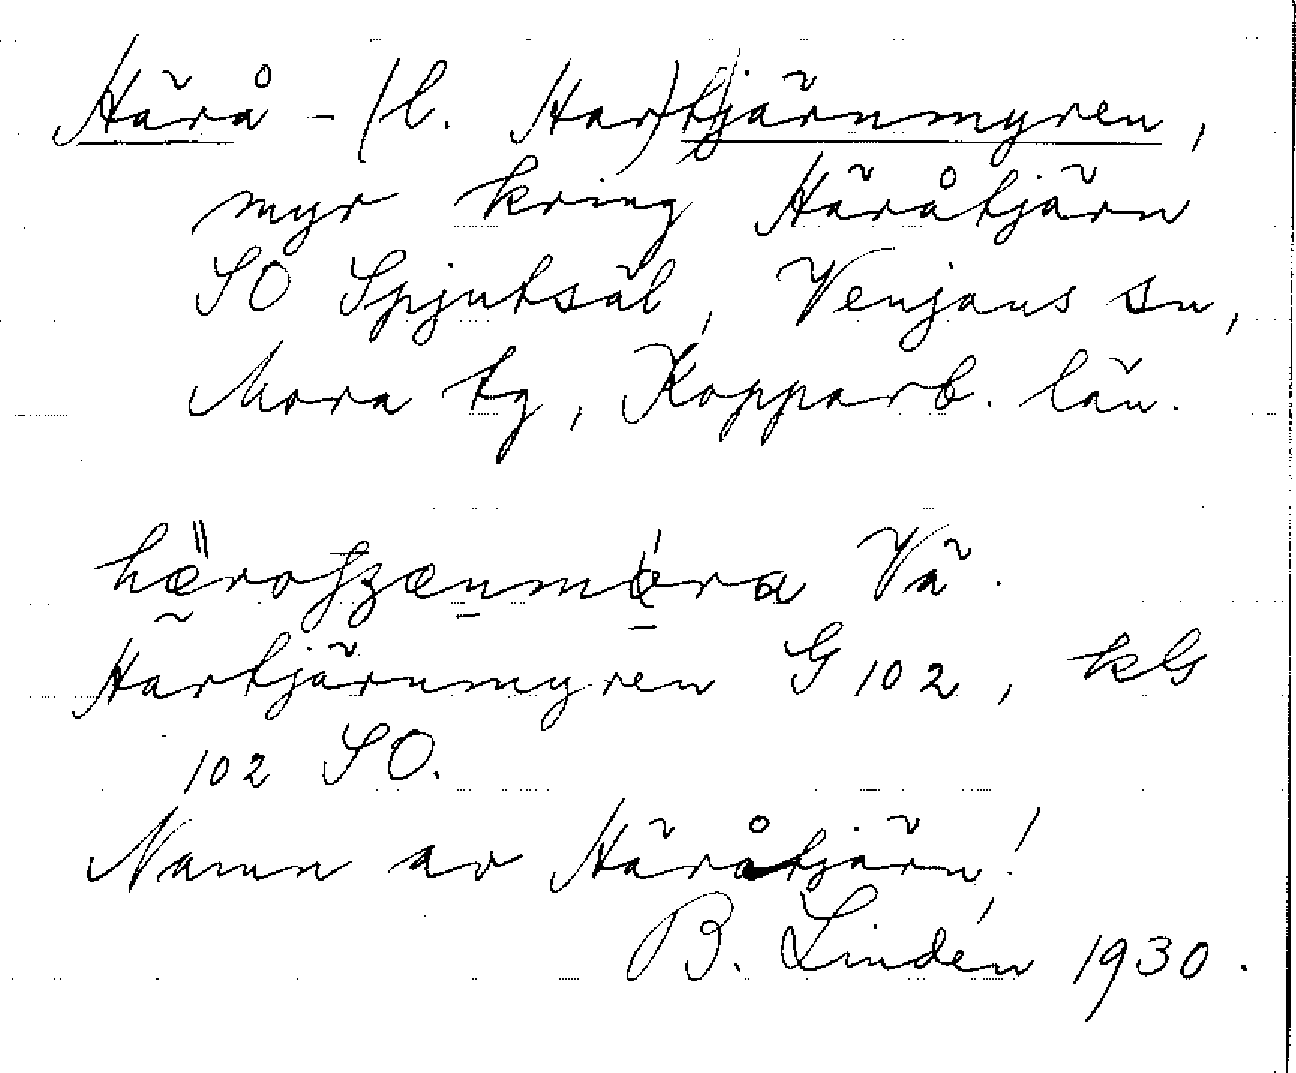 Härå - (l. Har)tjärnmyren,
myr kring Häråtjärn
SO Spjutsäl, Venjans sn,
Mora tg, Kopparb. län.
Vä.
Härtjärnmyren G 102, kG
102 SO.
Namn av Häråtjärn!
B. Lindén 1930.